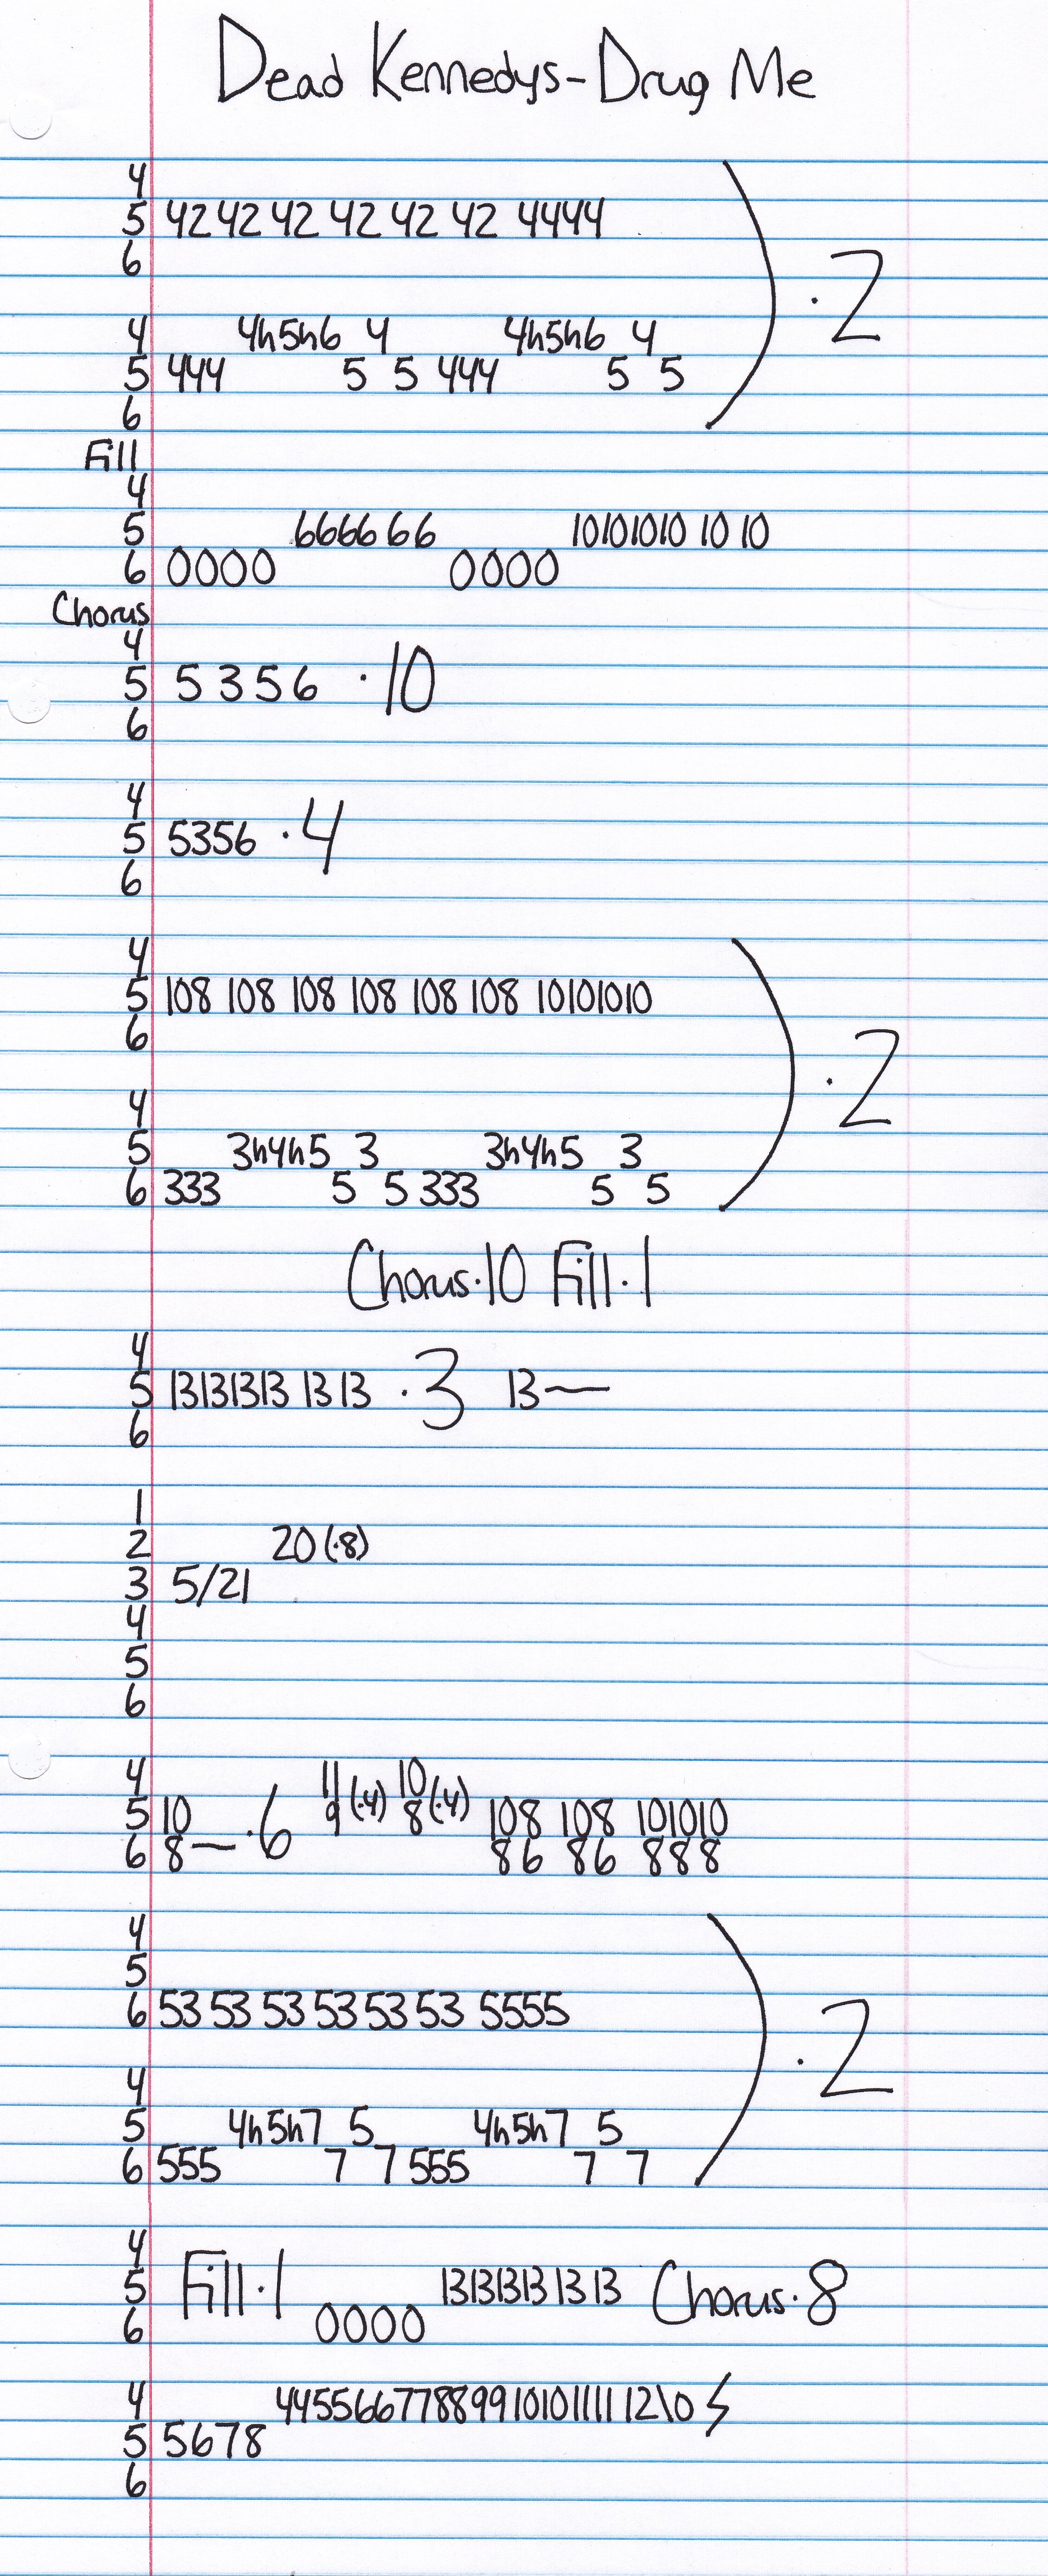 Dead Kennedys-Drug Me
4
5 42 42 42 42 42 42 4444
6
·2
4 4h5h6 4 4h5h6 4
5 444 5 5 444 5 5
6
Fill
4
5 6666 6 6 10101010 10 10
6 0000 0000
Chorus
4
5 5 3 5 6 ·10
6
4
5 5356 ·4
6
4
5 108 108 108 108 108 108 10101010
6
·2
4
5 3h4h5 3 3h4h5 3
6 333 5 5 333 5 5
Chorus·10 Fill·1
4
5 13131313 13 13 ·3 13—
6
1
2 20(·8)
3 5/21
4
5
6
4 11 (·4) 10 (·4)
5 10 9 8 108 108 101010
6 8— ·6 86 86 888
4
5
6 53 53 53 53 53 53 5555
·2
4
5 4h5h7 5 4h5h7 5
6 555 7 7 555 7 7
4
5 Fill·1 13131313 13 13 Chorus·8
6 0000
4 44556677889910101111 12\0
5 5678
6